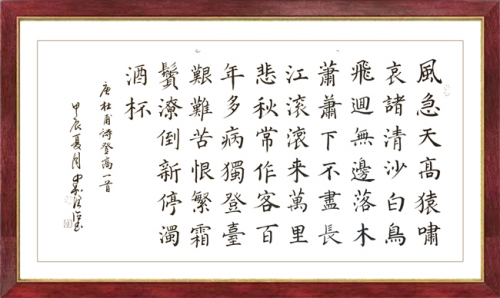 風急天高猿嘯
哀諸清沙白鳥
飛迴無邊落木
蕭蕭下不盡長
江滾滾來萬里
悲秋常作客百
年多病獨登臺
艱難苦恨繁霜
鬢潦倒新停濁
酒杯
唐杜甫詩登高一首
甲辰夏月